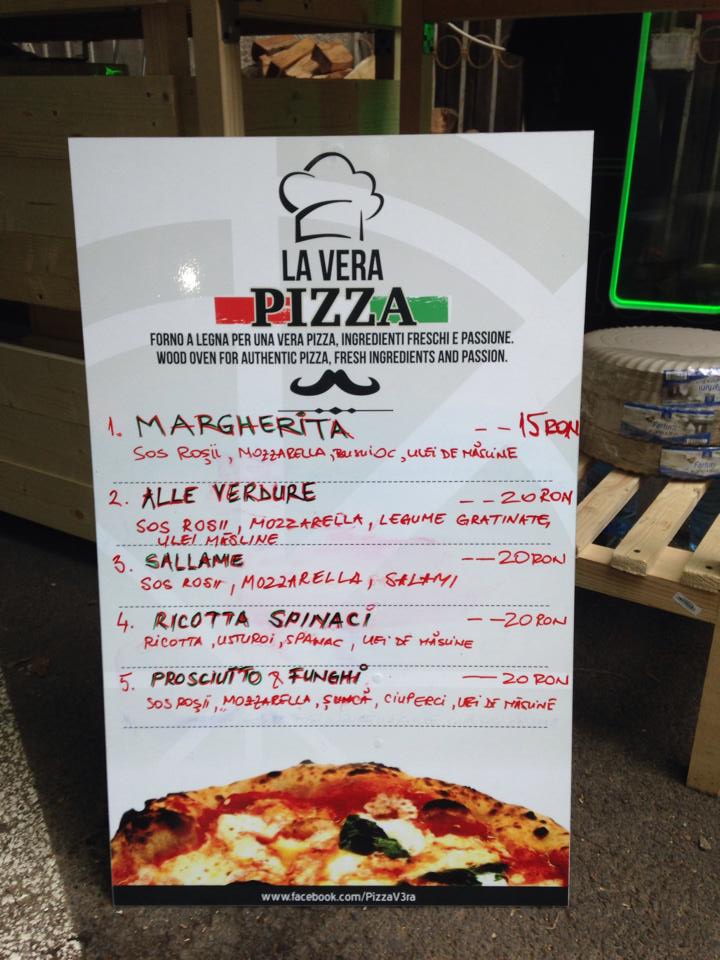 LA VERA
PIZZA
FORNO A LEGNA PER UNA VERA PIZZA, INGREDIENTI FRESCHI E PASSIONE.
WOOD OVEN FOR AUTHENTIC PIZZA, FRESH INGREDIENTS AND PASSION.
1. MARGHERITA -- 15 RON
SOS ROȘII, MOZZARELLA, BUSUIOC, ULEI DE MĂSLINE
2. ALLE VERDURE -- 20 RON
SOS ROSII, MOZZARELLA, LEGUME GRATINATE,
ULEI MĂSLINE
3. SALLAME -- 20 RON
SOS ROSII, MOZZARELLA, SALAMI
4. RICOTTA SPINACI -- 20 RON
RICOTTA, USTUROI, SPANAC, ULEI DE MĂSLINE
5. PROSCIUTTO & FUNGHI -- 20 RON
SOS ROȘII, MOZZARELLA, ȘUNCĂ, CIUPERCI, ULEI DE MĂSLINE
www.facebook.com/PizzaV3ra